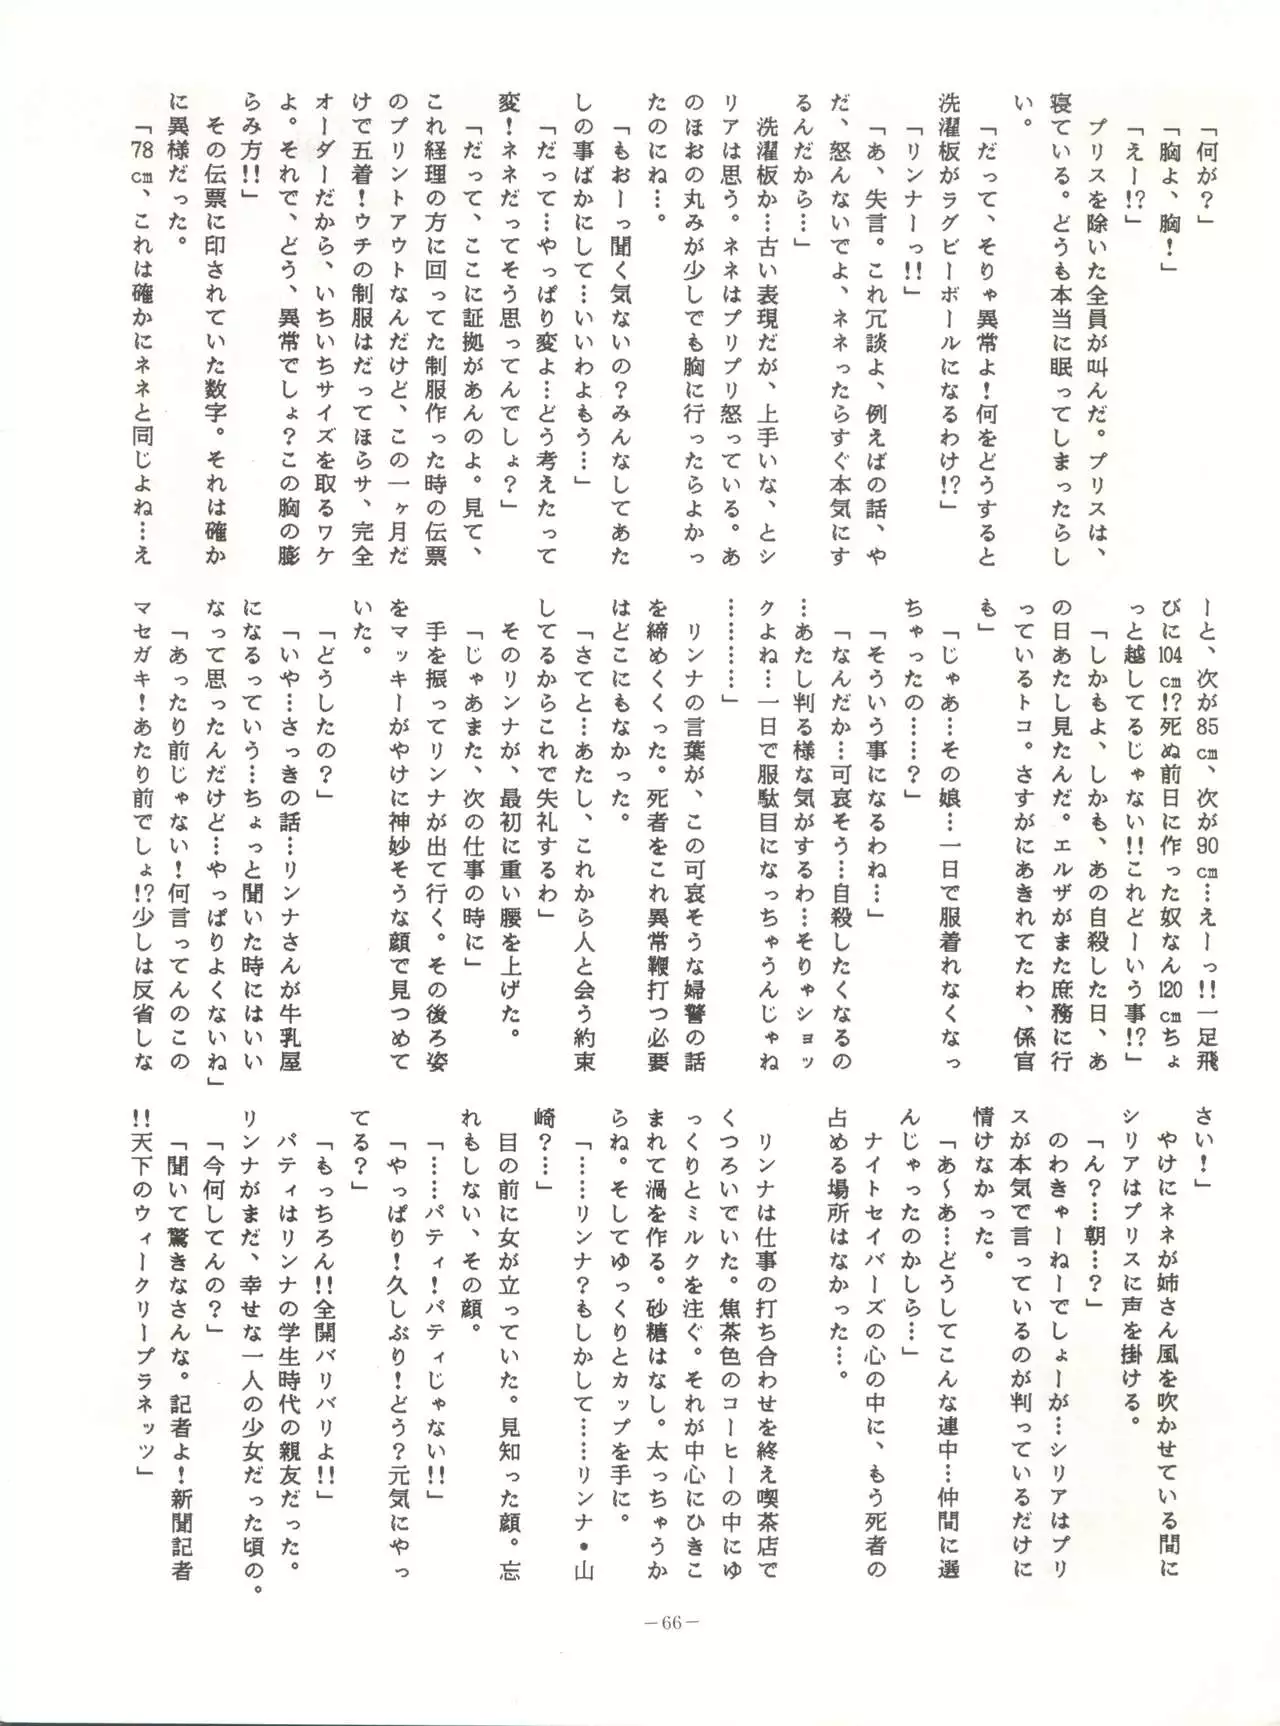 「何が？」
「胸よ、胸！」
「えー!?」
プリスを除いた全員が叫んだ。プリスは、
寝ている。どうも本当に眠ってしまったらし
い。
「だって、そりゃ異常よ！何をどうすると
洗濯板がラグビーボールになるわけ!?」
「リンナーっ!!」
「あ、失言。これ冗談よ、例えばの話、や
だ、怒んないでよ、ネネったらすぐ本気にす
るんだから…」
洗濯板か…古い表現だが、上手いな、とシ
リアは思う。ネネはプリプリ怒っている。あ
のほおの丸みが少しでも胸に行ったらよかっ
たのにね…。
「もおーっ聞く気ないの？みんなしてあた
しの事ばかにして…いいわよもう…」
「だって…やっぱり変よ…どう考えたって
変！ネネだってそう思ってんでしょ？」
「だって、ここに証拠があんのよ。見て、
これ経理の方に回ってた制服作った時の伝票
のプリントアウトなんだけど、この一ヶ月だ
けで五着！ウチの制服はだってほらサ、完全
オーダーだから、いちいちサイズを取るワケ
よ。それで、どう、異常でしょ？この胸の膨
らみ方!!」
その伝票に印されていた数字。それは確か
に異様だった。
「78㎝、これは確かにネネと同じよね…え
ーと、次が85㎝、次が90㎝…えーっ!!一足飛
びに104㎝!?死ぬ前日に作った奴なん120㎝ちょ
っと越してるじゃない!!これどーいう事!?」
「しかもよ、しかも、あの自殺した日、あ
の日あたし見たんだ。エルザがまた庶務に行
っているトコ。さすがにあきれてたわ、係官
も」
「じゃあ…その娘…一日で服着れなくなっ
ちゃったの……？」
「そういう事になるわね…」
「なんだか…可哀そう…自殺したくなるの
…あたし判る様な気がするわ…そりゃショッ
クよね…一日で服駄目になっちゃうんじゃね
…………」
リンナの言葉が、この可哀そうな婦警の話
を締めくくった。死者をこれ異常鞭打つ必要
はどこにもなかった。
「さてと…あたし、これから人と会う約束
してるからこれで失礼するわ」
そのリンナが、最初に重い腰を上げた。
「じゃあまた、次の仕事の時に」
手を振ってリンナが出て行く。その後ろ姿
をマッキーがやけに神妙そうな顔で見つめて
いた。
「どうしたの？」
「いや…さっきの話…リンナさんが牛乳屋
になるっていう…ちょっと聞いた時にはいい
なって思ったんだけど…やっぱりよくないね」
「あったり前じゃない！何言ってんのこの
マセガキ！あたり前でしょ!?少しは反省しな
さい！」
やけにネネが姉さん風を吹かせている間に
シリアはプリスに声を掛ける。
「ん？…朝…？」
のわきゃーねーでしょーが…シリアはプリ
スが本気で言っているのが判っているだけに
情けなかった。
「あ〜あ…どうしてこんな連中…仲間に選
んじゃったのかしら…」
ナイトセイバーズの心の中に、もう死者の
占める場所はなかった…。
リンナは仕事の打ち合わせを終え喫茶店で
くつろいでいた。焦茶色のコーヒーの中にゆ
っくりとミルクを注ぐ。それが中心にひきこ
まれて渦を作る。砂糖はなし。太っちゃうか
らね。そしてゆっくりとカップを手に。
「……リンナ？もしかして……リンナ・山
崎？…」
目の前に女が立っていた。見知った顔。忘
れもしない、その顔。
「……パティ！パティじゃない!!」
「やっぱり！久しぶり！どう？元気にやっ
てる？」
「もっちろん!!全開バリバリよ!!」
パティはリンナの学生時代の親友だった。
リンナがまだ、幸せな一人の少女だった頃の。
「今何してんの？」
「聞いて驚きなさんな。記者よ！新聞記者
!!天下のウィークリープラネッツ」
―66―